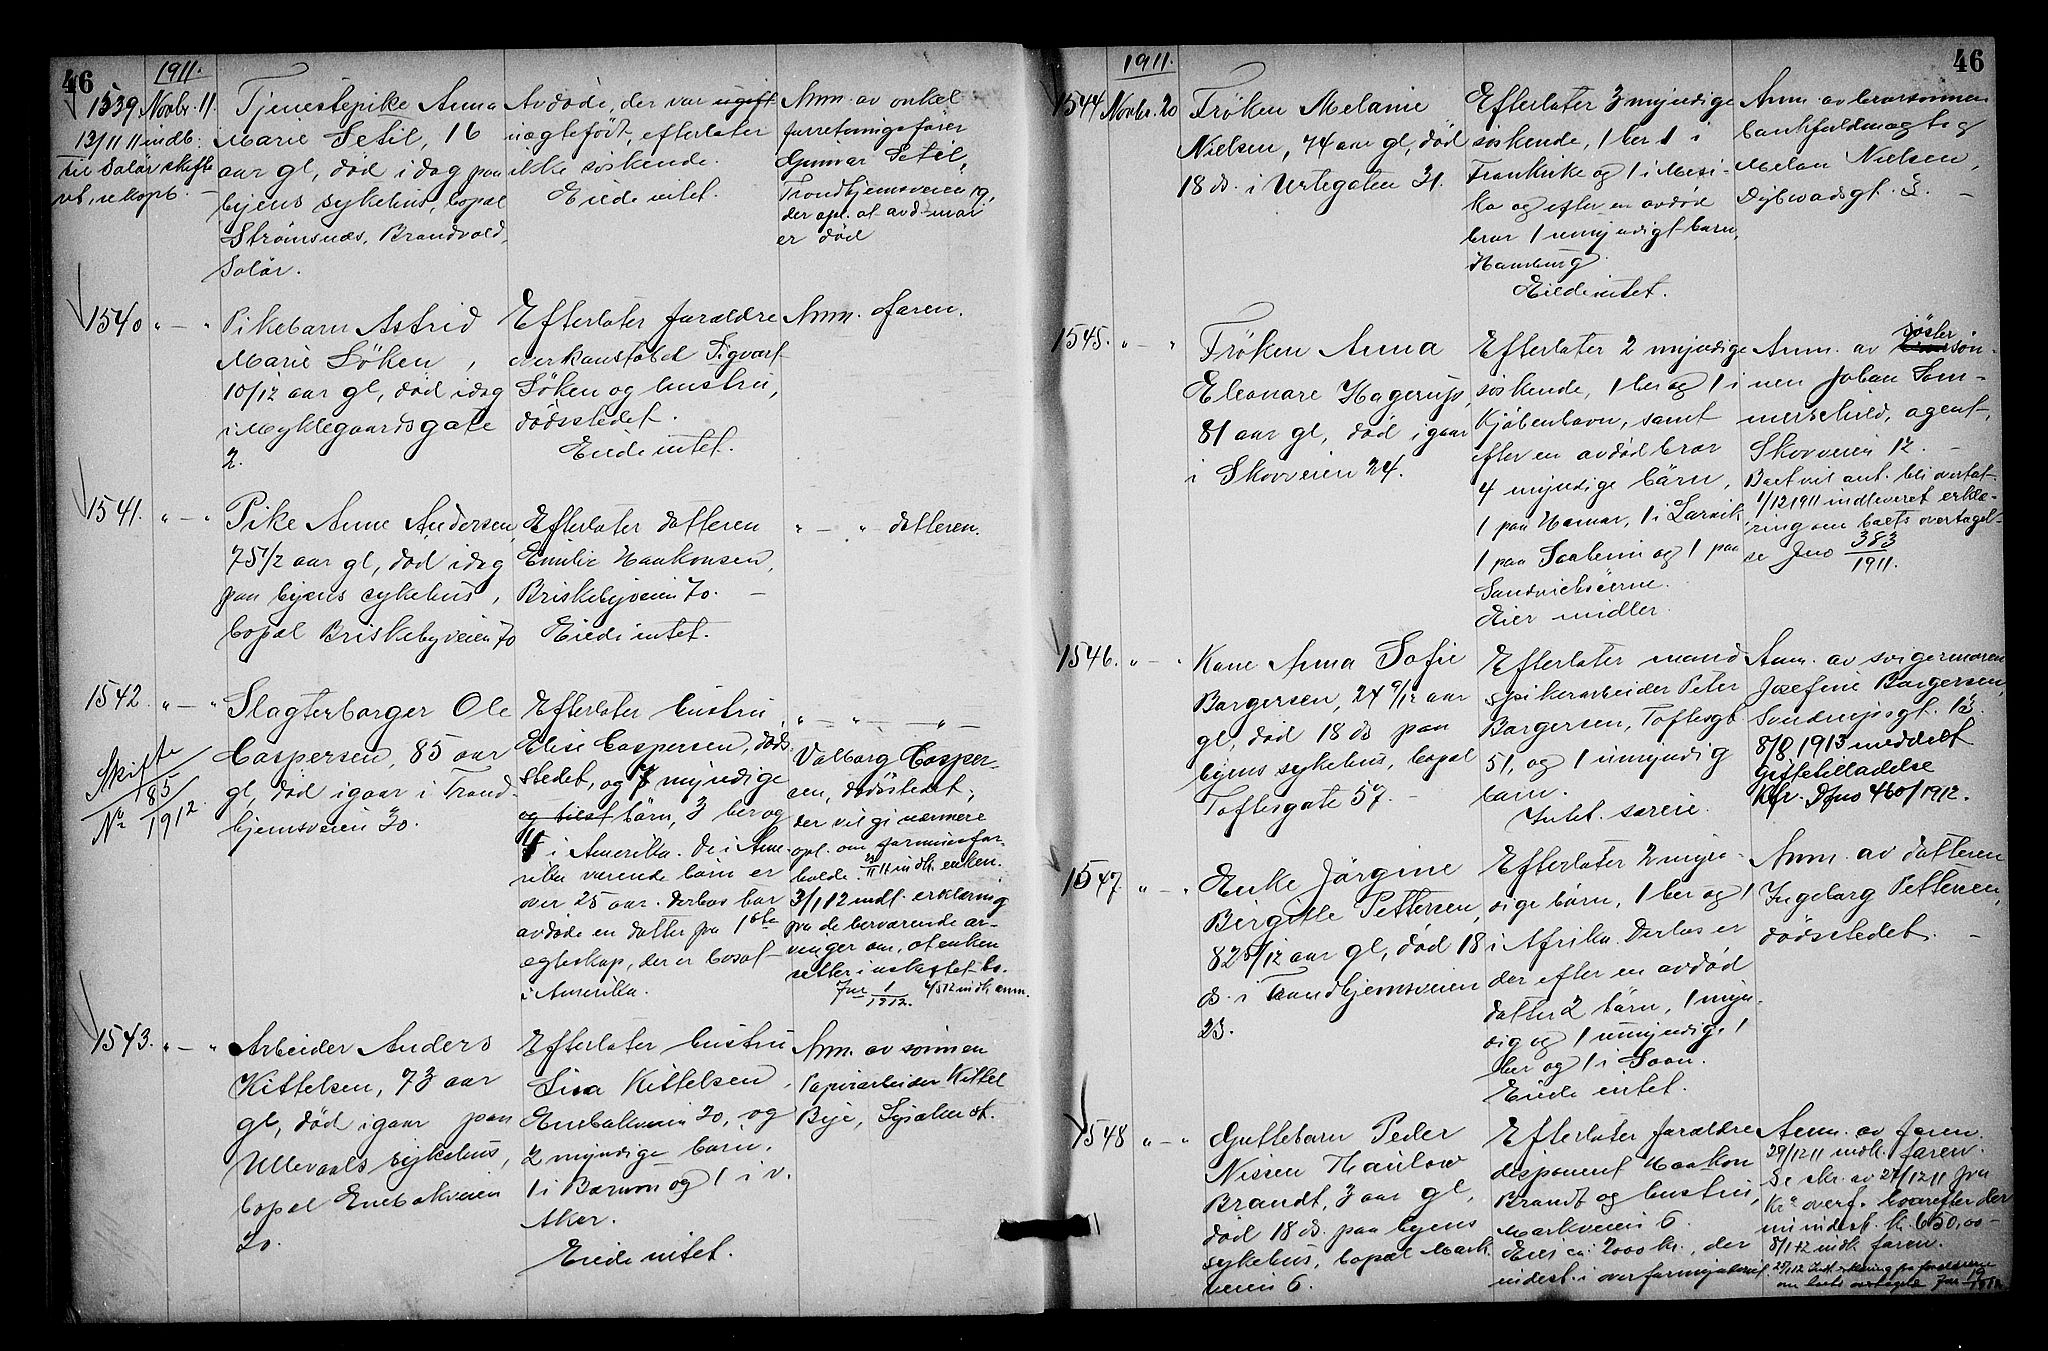 46
1911.
1539 Novbr. 11.
13/11 11 indb.
til Solør skifte
ret, rekopb. -
Tjenestepike Anna
Marie Setil, 16
aar gl, død i dag paa
byens sykehus, bopæl
Strømsnæs, Brandvold,
Solør.
Avdøde, der var ugift
uegtefødt, efterlater
ikke søskende.
Eiede intet.
Anm. av onkel
forretningsfører
Gunnar Setil,
Trondhjemsveien 19,
der opl. at avd. mor
er død
1540 " - "
Pikebarn Astrid
Marie Søken,
10/12 aar gl, død idag
i Myklegaardsgate
2.
Efterlater forældre
verkansatbet Sigvart
Søken og hustru,
dødsstedet.
Eiede intet.
Anm. faren.
1541. " - "
Pike Anne Andersen,
75 1/2 aar gl, død idag
paa byens sykehus,
bopæl Briskebyveien 70
Efterlater datteren
Emilie Haakonsen,
Briskebyveien 70. -
Eiede intet.
" - " datteren.
1542. " - "
Skifte
No 85/1912.
Slagterborger Ole
Caspersen, 85 aar
gl, død igaar i Trond-
hjemsveien 30.
Efterlater hustru
Elise Caspersen, døds-
stedet, og 7 myndige
børn, 3 her og
4 i Amerika. De i Ame-
rika værende børn er
over 25 aar. Derhos har
avdøde en datter fra 1ste
egteskap, der er bosat
i Amerika.
" - " - " -
Valborg Casper-
sen, dødsstedet,
der vil gi nærmere
opl. om formuesfor-
holde. 23/11 11 indk. enken.
3/1 12 indl. erklæring
fra de herværende ar-
vinger om, at enken
sitter i uskiftet bo.
Jno 1/1912. 4/5 12 indk. anm.
1543. " - "
Arbeider Anders
Kittelsen, 73 aar
gl, død igaar paa
Ullevaals sykehus,
bopæl Enebakveien
20.
Efterlater hustru
Lina Kittelsen,
Enebakveien 20, og
2 myndige børn,
1 i Bærum og 1 i v.
Aker.
Eiede intet.
Anm. av sønnen
Papirarbeider Kittel
Bye, Lysaker st.
46
1911.
1544 Novbr. 20
Frøken Melanie
Nielsen, 74 aar gl, død
18 ds. i Urtegaten 31.
Efterlater 3 myndige
søskende, 1 her 1 i
Frankrike og 1 i Mexi-
ko og efter en avdød
bror 1 umyndigt barn,
Hamburg
Eiede intet.
Anm. av brorsønnen
bankfuldmægtig
Melan Nielsen,
Dybwadsgt. 3. -
1545. " - "
Frøken Anna
Eleonore Hagerup,
81 aar gl, død igaar
i Skovveien 24.
Efterlater 2 myndige
søskende, 1 her og 1 i
Kjøbenhavn, samt
efter en avdød bror
4 myndige børn,
1 paa Hamar, 1 i Larvik,
1 paa Snaheim og 1 paa
Sandwichøerne.
Eier midler.
Anm. av søster
søn-
nen Johan Som-
merschild, agent,
Skovveien 12. -
Boet vil ant. bli overtat.
1/12 1911 indleveret erklæ-
ring om boets overtagel-
se Jno 383/1911.
1546. " - "
Kone Anna Sofie
Borgersen, 24 9/12 aar
gl, død 18 ds paa
byens sykehus, bopæl
Toftesgate 57. -
Efterlater mand
spikerarbeider Peter
Borgersen, Toftesgt
51, og 1 umyndig
barn.
Intet særeie.
Anm. av svigermoren
Josefine Borgersen,
Sondrupsgt. 13.
8/8 1913 meddelt
giftetilladelse
Kfr. Djno 460/1912.
1547. " - "
Enke Jørgine
Birgitte Pettersen,
82 5/12 aar gl, død 18
ds. i Trondhjemsveien
23.
Efterlater 2 myn-
dige børn, 1 her og 1
i Afrika. Derhos er
der efter en avdød
datter 2 børn, 1 myn-
dig og 1 umyndig, 1
her og 1 i Soon.
Eiede intet.
Anm. av datteren
Ingeborg Pettersen,
dødsstedet. -
1548 " - "
Guttebarn Peder
Nissen Thaulow
Brandt, 3 aar gl,
død 18 ds. paa byens
sykehus, bopæl Mark-
veien 6.
Efterlater forældre
disponent Haakon
Brandt og hustru,
Markveien 6.
Eier ca: 2000 kr., der
indest. i overformynderiet.
Anm. av faren.
29/12 11 indk. faren.
Se skr. av 27/12 11 fra
Kra overf. hvorefter der
indest. kr. 650,00 -
8/1 12 indk faren.
27/1 12 Indl. erklæring fra forældrene
om boets overtagelse Jno 19/1912